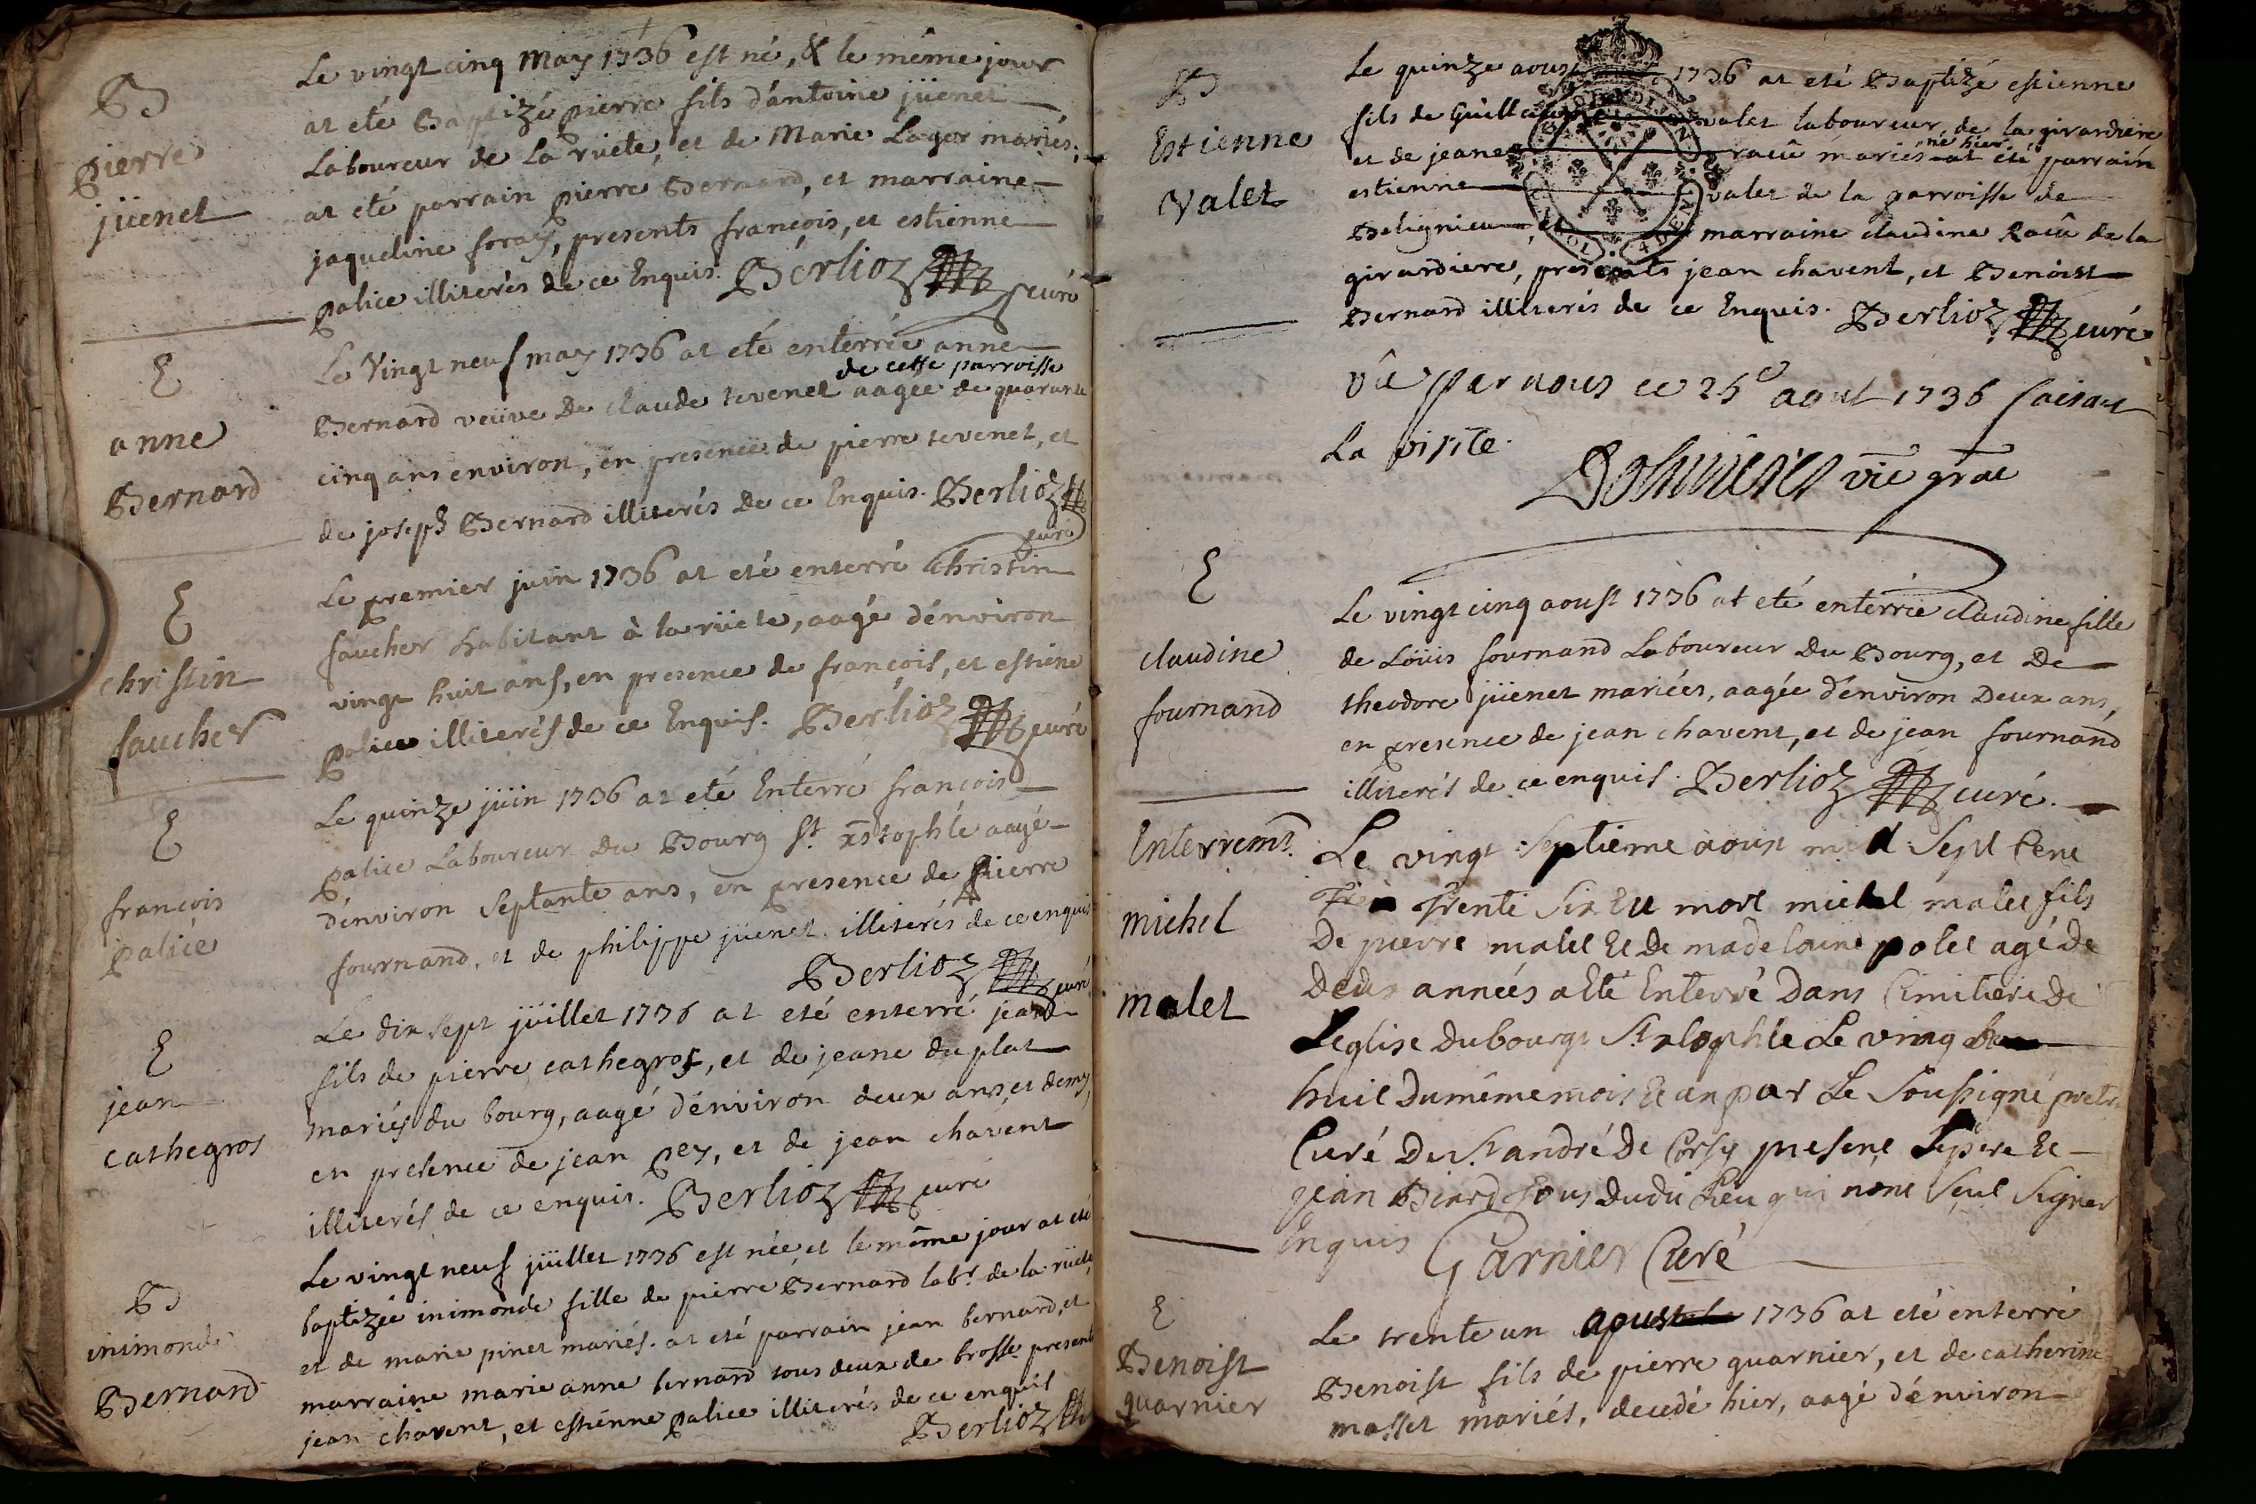 B
pierre
jüenet
Le vingt cinq May 1736 est né, & le même jour
at eté Baptizé pierre fils d'antoine jüenet
Laboureur de La rüete, et de Marie Lager mariés,
at eté parrain pierre Bernard, et marraine
jaqueline foray, presents françois, et estienne
palice illiterés de ce Enquis. Berlioz curé
E
anne
Bernard
Le Vingt neuf may 1736 at eté enterrée anne
de cette parroisse
Bernard veüve De claude tevenet aagée de quarante
cinq ans environ, en presence de pierre tevenet, et
de joseph Bernard illiterés De ce Enquis. Berlioz
curé
E
christin
faucher
Le premier juin 1736 at eté enterré christin
faucher habitant à la rüete, aagé d'environ
vingt huit ans, en presence de françois, et estiene
palice illiterés de ce Enquis. Berlioz curé
E
françois
palice
Le quinze jüin 1736 at eté Enterré françois
palice Laboureur Du Bourg St. xstophle aagé
d'environ septante ans, en presence de pierre
fournand, et de philippe jüenet illiterés de ce enquis
Berlioz curé
E
jean
cathegros
Le dix sept juillet 1736 at eté enterré jean
fils de pierre cathegros, et de jeane du plat
mariés du bourg, aagé d'environ deux ans et demy,
en presence de jean pey, et de jean chavent
illiterés de ce enquis. Berlioz curé
B
inimonde
Bernard
Le vingt neuf jüillet 1736 est née et le même jour at eté
baptizée inimonde fille de pierre Bernard labr. de la rüete
et de marie pinet mariés. at eté parrain jean bernard, et
marraine marie anne bernard tous deux de brosse presents
jean chavent, et estienne palice illiterés de ce enquis
Berlioz
B
Estienne
Valet
Le quinze aoust 1736 at eté Baptizé estienne
fils de Guillaume valet laboureur de la girardiere
né hier
et de jeane racû mariés at eté parrain
estienne valet de la parroisse de
Beligneu, et marraine claudine Racû de la
girardiere, presents jean chavent, et Benoist
Bernard illiterés de ce Enquis. Berlioz curé
Vû par nous ce 25e aout 1736 faisant
La visite.
vic gral
E
claudine
fournand
Le vingt cinq aoust 1736 at eté enterrée claudine fille
de Loüis fournand Laboureur Du Bourg, et De
theodore jüenet mariées, aagée d'environ Deux ans,
en presence de jean chavent, et de jean fournand
illiterés de ce enquis. Berlioz curé.
Enterremt.
michel
malet
Le vingt septieme aoust mil Sept Cent
Trente Six Est mort michel malet fils
De pierre malet Et De madelaine polet agé De
Deux années a Eté Enterré Dans Cimitiere De
L'eglise Du bourgt St. xtophle Le vingt
huit Du même mois Et an par Le Soussigné pretre
Curé De St. andré De Corsy present Le pere Et
jean Biard tous Dudit Lieu qui n'ont Seut Signer
Enquis Garnier Curé
E
Benoist
guarnier
Le trente un aoust 1736 at eté enterré
Benoist fils de pierre guarnier, et de catherine
masset mariés, decedé hier, aagé d'environ